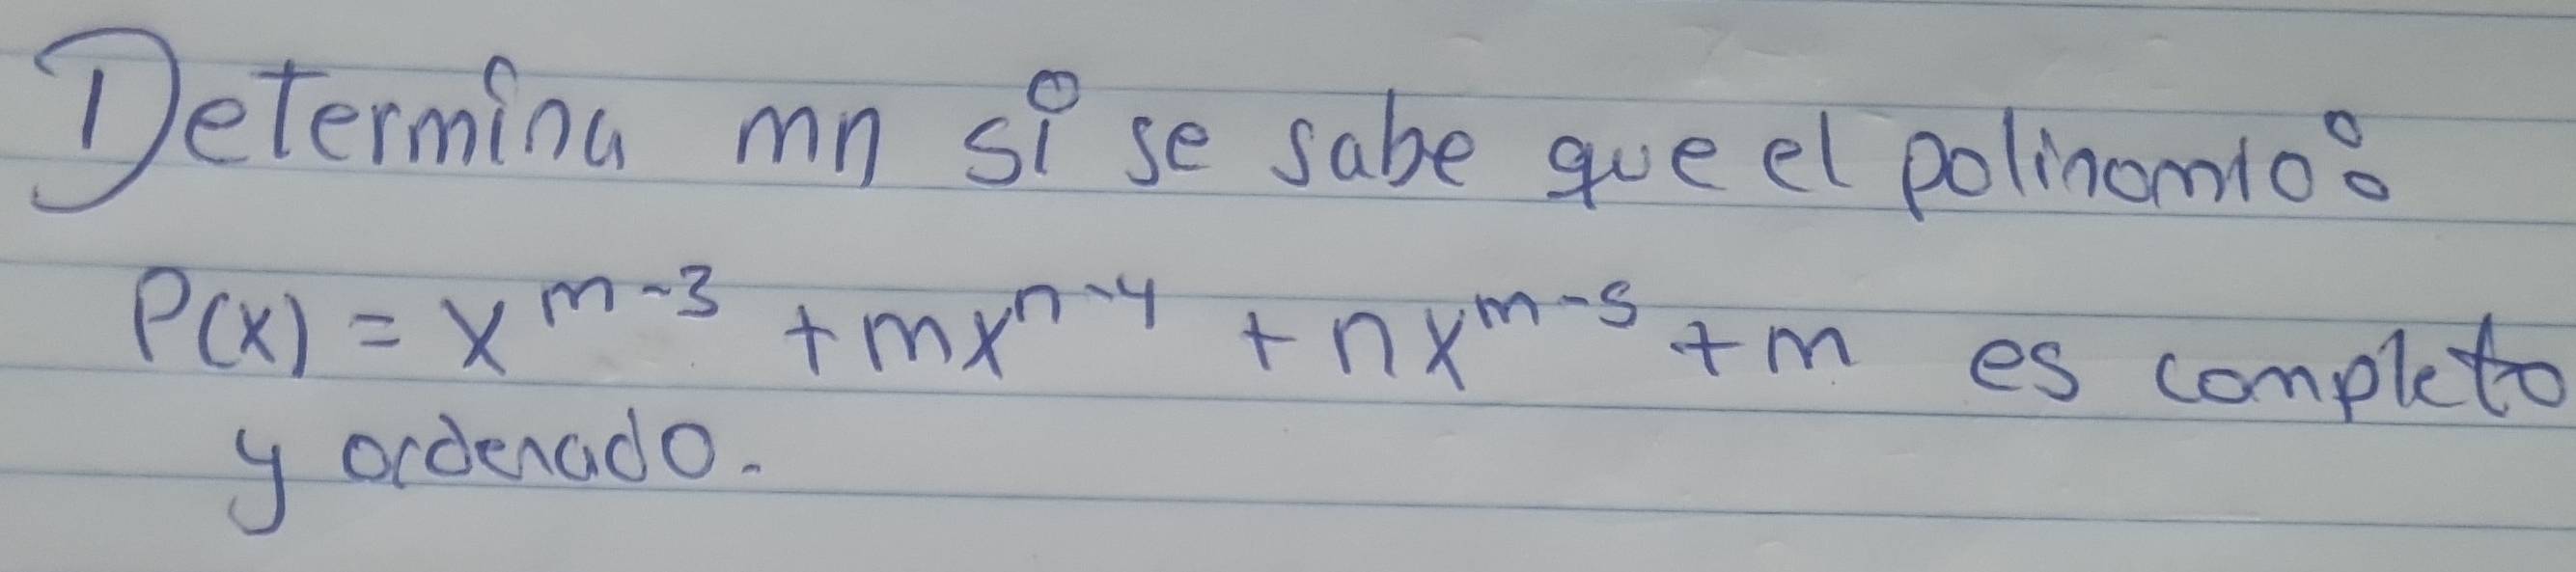 Determina mn si se sabe que el polinomio:
P(x) = x^{m-3} + mx^{n-4} + nx^{m-5} + m es completo
y ordenado.